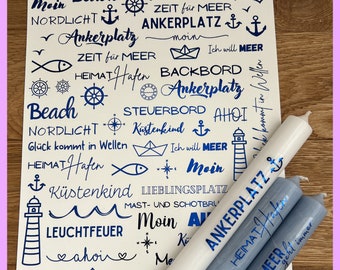 Moin
NORDLICHT
ZEIT für MEER
ANKERPLATZ
Ankerplatz
moin
ZEIT für MEER
Ich will MEER
HEIMAT Hafen
BACKBORD
Beach
STEUERBORD
AHOI
NORDLICHT
Küstenkind
Glück kommt in Wellen
Ich will MEER
HEIMAT Hafen
Moin
Glück kommt in Wellen
Küstenkind
LIEBLINGSPLATZ
MAST- UND SCHOTBRUCH
LEUCHTFEUER
Moin
ahoi
ANKERPLATZ
HEIMAT Hafen
MEER
immer